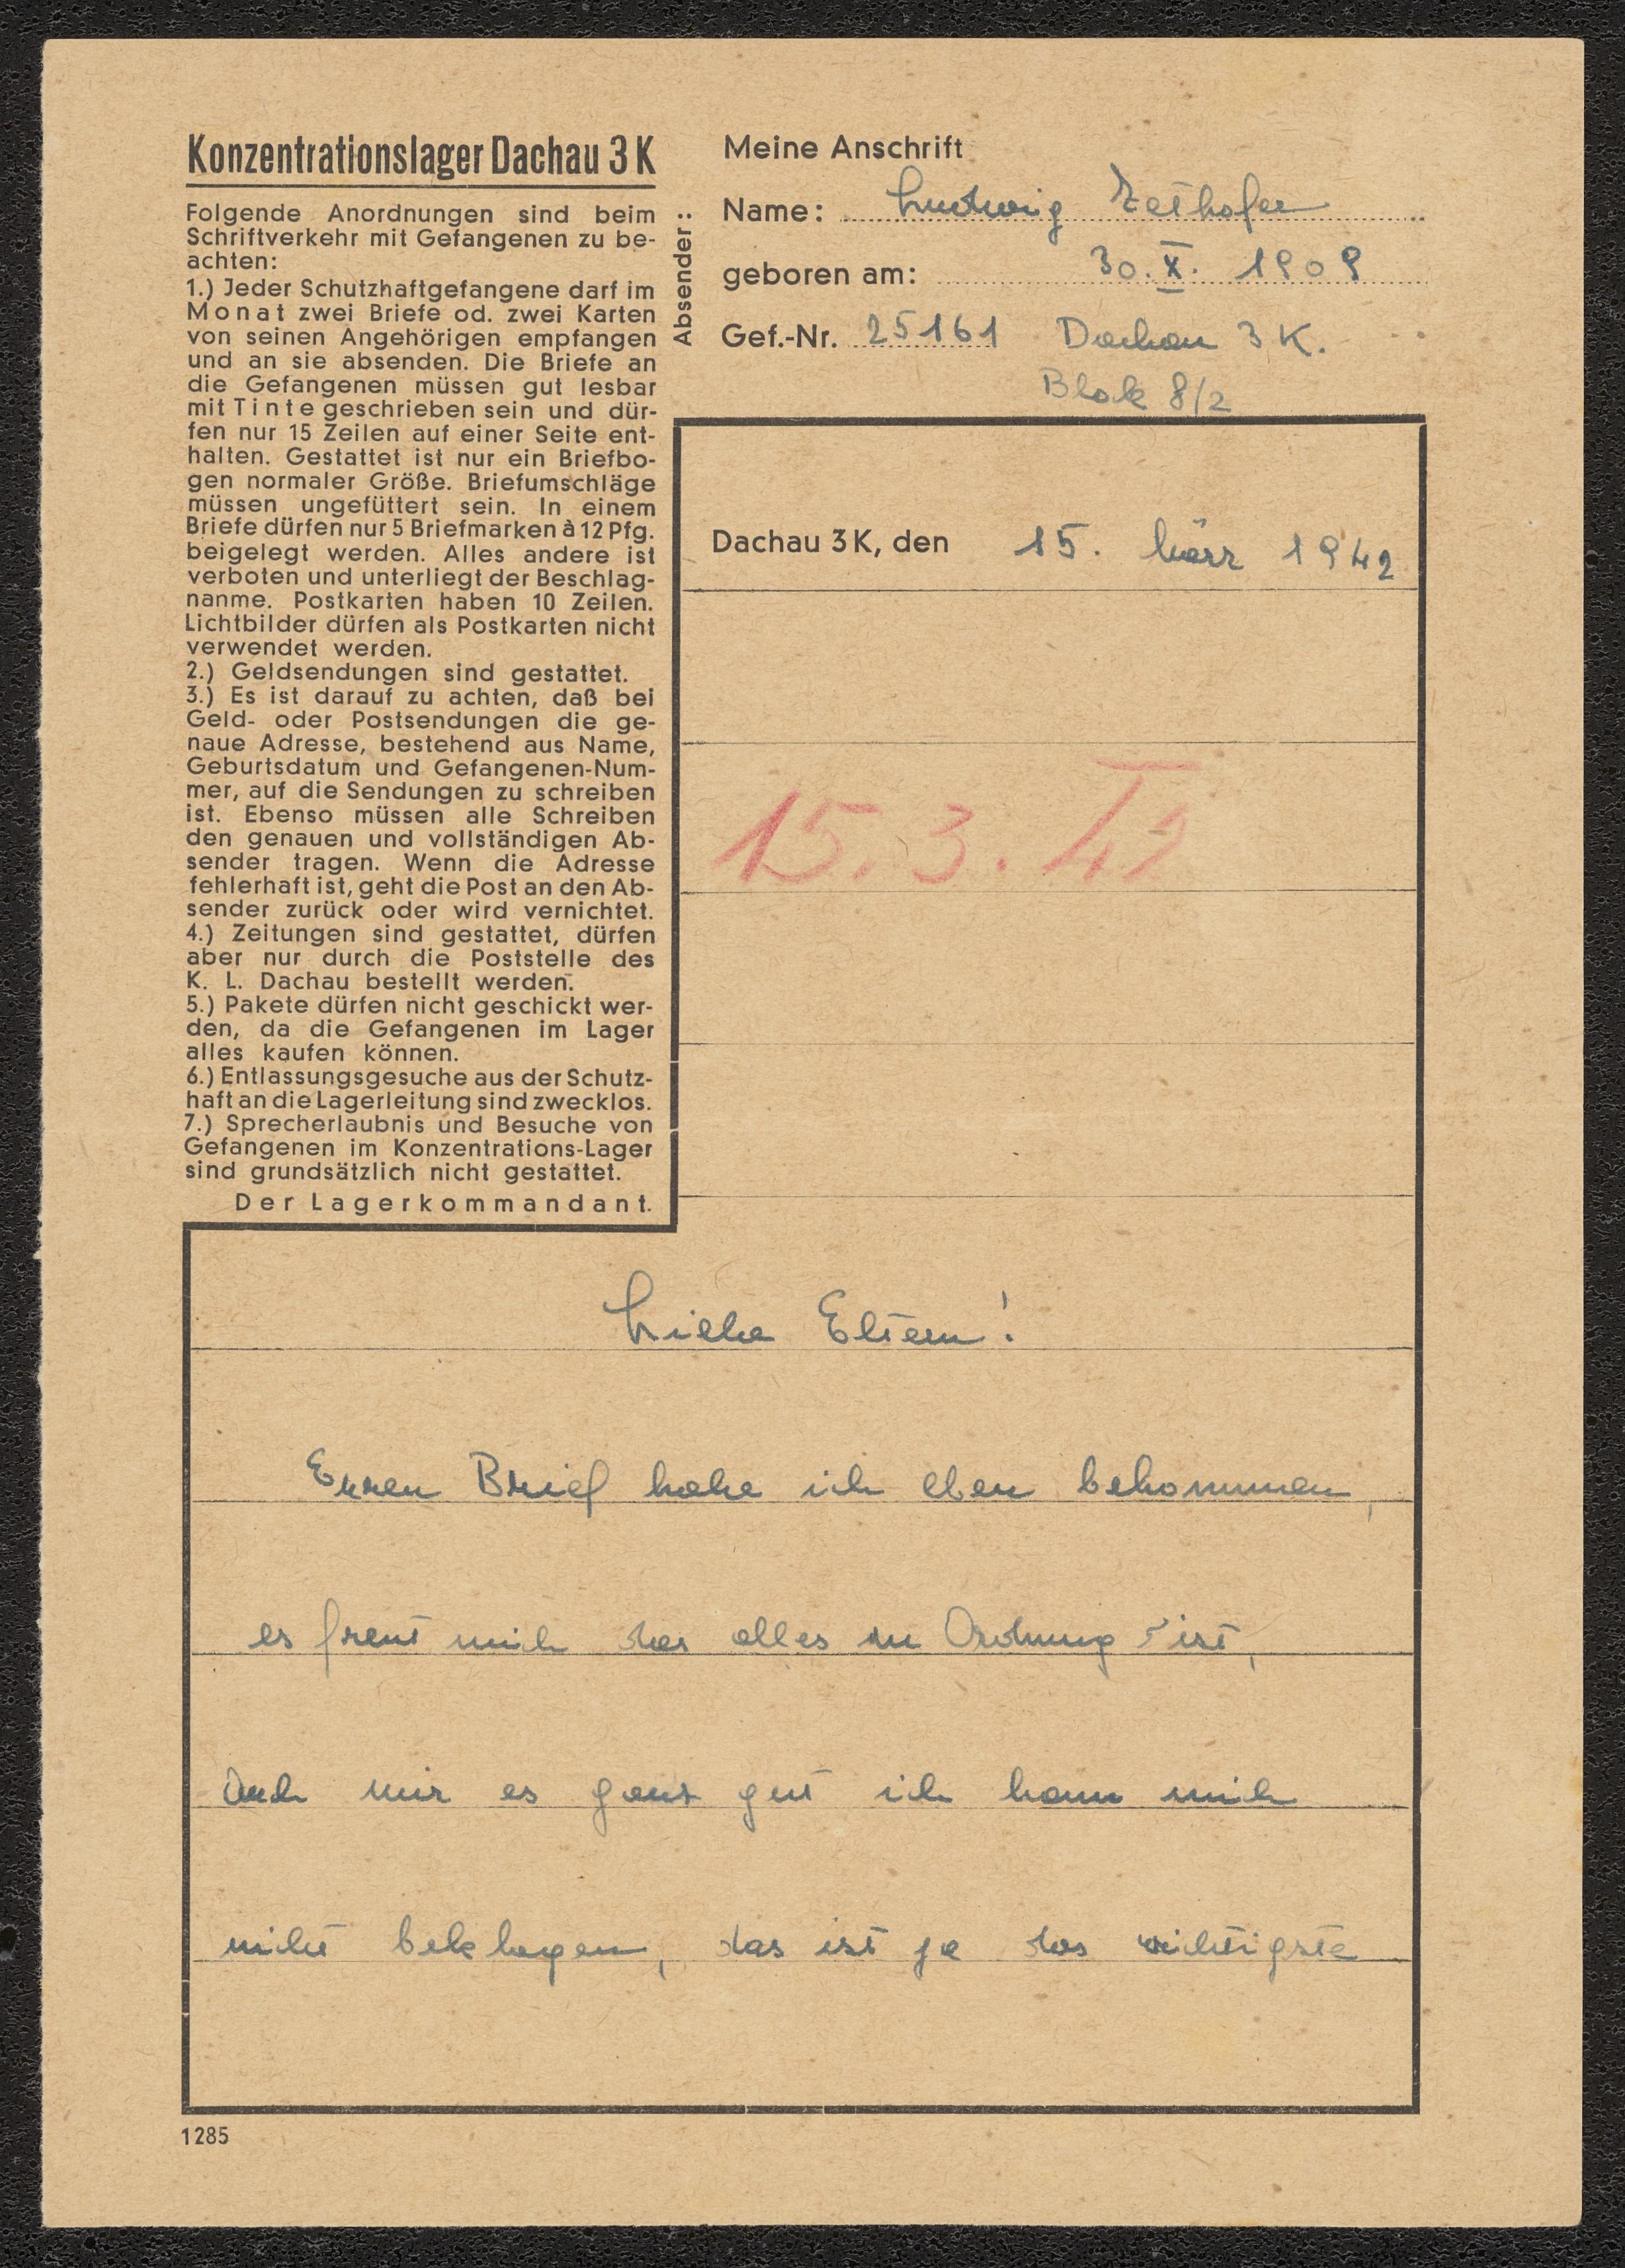 Konzentrationslager Dachau 3 K
Folgende Anordnungen sind beim
Schriftverkehr mit Gefangenen zu be-
achten:
1.) Jeder Schutzhaftgefangene darf im
Monat zwei Briefe od. zwei Karten
von seinen Angehörigen empfangen
und an sie absenden. Die Briefe an
die Gefangenen müssen gut lesbar
mit Tinte geschrieben sein und dür-
fen nur 15 Zeilen auf einer Seite ent-
halten. Gestattet ist nur ein Briefbo-
gen normaler Größe. Briefumschläge
müssen ungefüttert sein. In einem
Briefe dürfen nur 5 Briefmarken à 12 Pfg.
beigelegt werden. Alles andere ist
verboten und unterliegt der Beschlag-
nanme. Postkarten haben 10 Zeilen.
Lichtbilder dürfen als Postkarten nicht
verwendet werden.
2.) Geldsendungen sind gestattet.
3.) Es ist darauf zu achten, daß bei
Geld- oder Postsendungen die ge-
naue Adresse, bestehend aus Name,
Geburtsdatum und Gefangenen-Num-
mer, auf die Sendungen zu schreiben
ist. Ebenso müssen alle Schreiben
den genauen und vollständigen Ab-
sender tragen. Wenn die Adresse
fehlerhaft ist, geht die Post an den Ab-
sender zurück oder wird vernichtet.
4.) Zeitungen sind gestattet, dürfen
aber nur durch die Poststelle des
K. L. Dachau bestellt werden.
5.) Pakete dürfen nicht geschickt wer-
den, da die Gefangenen im Lager
alles kaufen können.
6.) Entlassungsgesuche aus der Schutz-
haft an die Lagerleitung sind zwecklos.
7.) Sprecherlaubnis und Besuche von
Gefangenen im Konzentrations-Lager
sind grundsätzlich nicht gestattet.
Der Lagerkommandant.
Absender:
Meine Anschrift
Name: Ludwig Zethofer
geboren am: 30. X. 1909
Gef.-Nr. 25161 Dachau 3 K.
Blok 8/2
Dachau 3 K, den 15. März 1942
15. 3. 42
Liebe Eltern!
Euren Brief habe ich eben bekommen,
es freut mich das alles in Ordnung ist,
Auch mir es ganz gut ich kann mich
nicht beklagen, das ist ja das wichtigste
1285